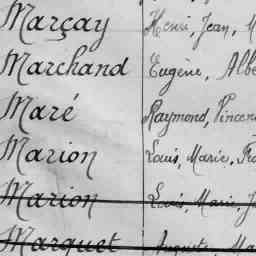 Marçay Henri, Jean, M
Marchand Eugène, Albe
Maré Raymond, Vincen
Marion Louis, Marie, Fra
Marion Louis, Marie, F
Marquet Auguste, Ma